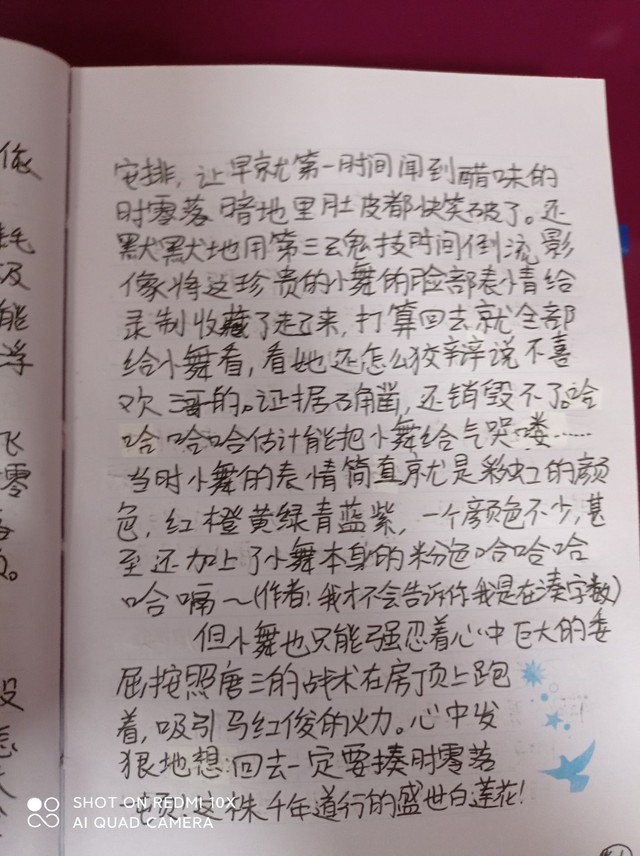 依
耗
及
能
浮
飞
零
没
安排，让早就第一时间闻到醋味的
时零落暗地里肚皮都快笑破了。还
默默地用第三魂技时间倒流影
像将这珍贵的小舞的脸部表情给
录制收藏了起了来，打算回去就全部
给小舞看，看她还怎么狡辩说不喜
欢哥的。证据确凿，还销毁不了。哈
哈哈哈估计能把小舞给气哭喽……
当时小舞的表情简直就是彩虹的颜
色，红橙黄绿青蓝紫，一个颜色不少，甚
至还加上了小舞本身的粉色哈哈哈
哈嗝～(作者!我才不会告诉你我是在凑字数)
但小舞也只能强忍着心中巨大的委
屈按照唐三的战术在房顶上跑
着，吸引马红俊的火力。心中发
狠地想:回去一定要揍时零落
一顿!这株千年道行的盛世白莲花!
SHOT ON REDMI 10X
AI QUAD CAMERA